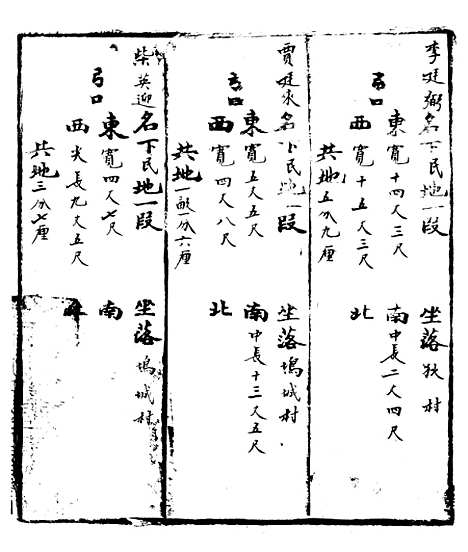 李廷弼名下民地一段 坐落狄村
弓口 東寬十四尺三尺 南中長二尺四尺
西寬十五尺三尺 北
共地五分九厘
賈廷來名下民地一段 坐落塢城村
弓口 東寬五尺五尺 南中長十三尺五尺
西寬四尺八尺 北
共地一畝一分六厘
柴英迎名下民地一段 坐落塢城村
弓口 東寬四尺七尺 南
西尖長九丈五尺
共地三分七厘